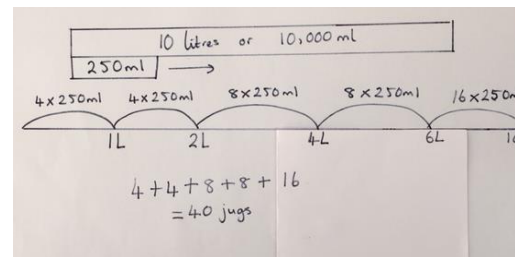 10 litres or 10,000 ml
250ml
4x250ml 4x250ml 8x250ml 8x250ml 16x250m
1L 2L 4L 6L 1
4+4+8+8+16
=40 jugs